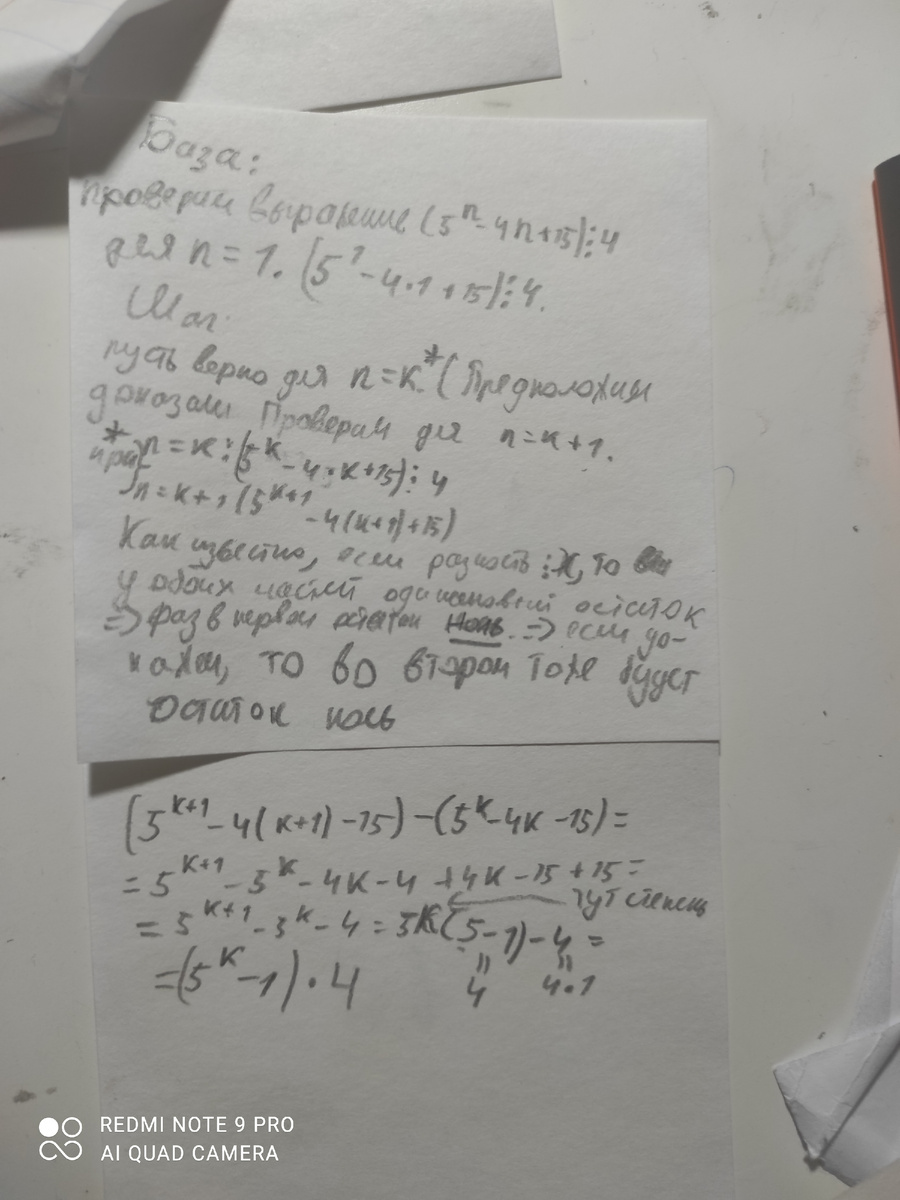 База:
Проверим выражение (5ⁿ-4n+15)⋮4
для n = 1. (5¹-4·1+15)⋮4.
Шаг.
пусть верно для n=k.* (Предположим
доказали Проверим для n=k+1.
* при n=k:(5ᵏ-4·k+15)⋮4
n=k+1 (5ᵏ⁺¹
-4(k+1)+15)
Как известно, если разность ⋮x, то
у обоих частей одинаковый остаток
=> раз в первом остаток ноль. => если до-
кажем, то во втором тоже будет
остаток ноль
(5ᵏ⁺¹-4(k+1)-15)-(5ᵏ-4k-15)=
=5ᵏ⁺¹-5ᵏ-4k-4+4k-15+15=
тут степень
=5ᵏ⁺¹-5ᵏ-4=5k(5-1)-4=
=(5ᵏ-1)·4
4 4·1
REDMI NOTE 9 PRO
AI QUAD CAMERA